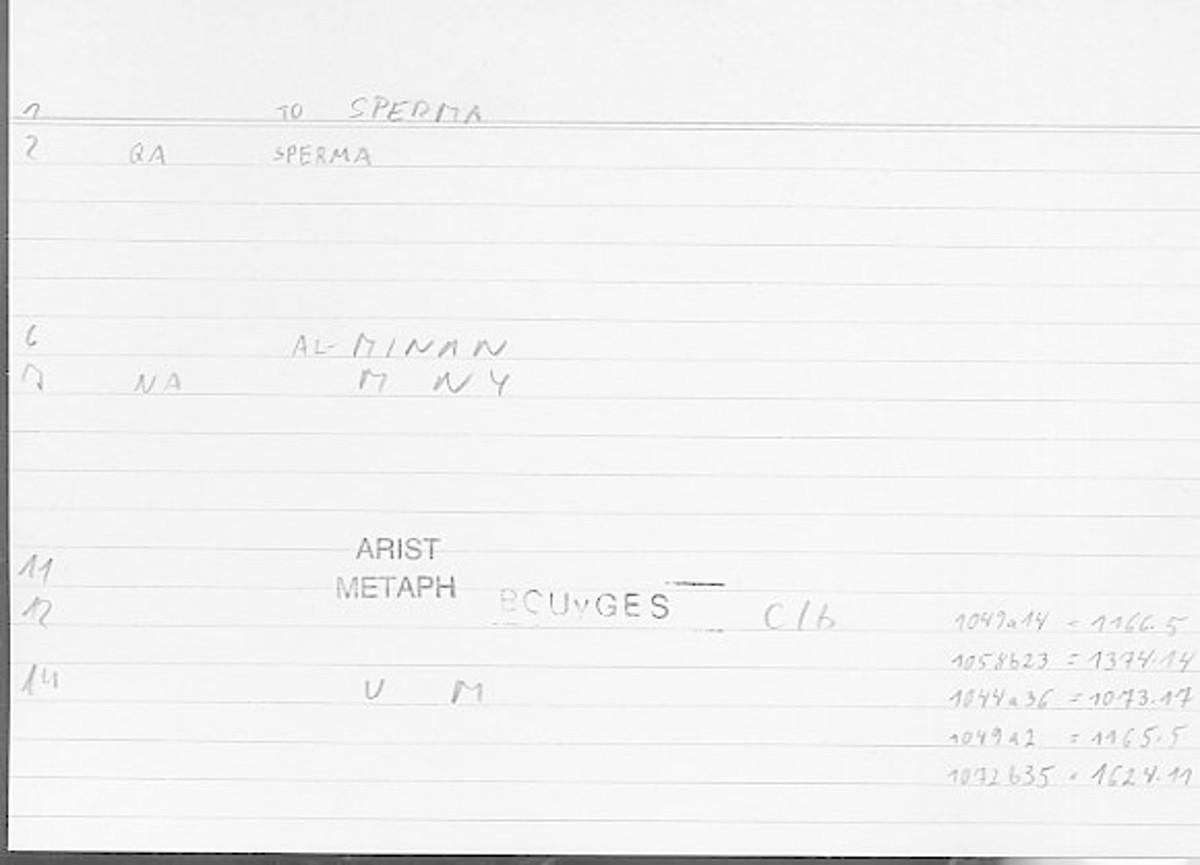 1 TO SPERMA
2 QA SPERMA
6 AL-MINAN
7 NA M NY
ARIST
11 METAPH
12 BCUvGES C/b 1049a14 = 1166.5
1058b23 = 1374.14
14 U M 1044a36 = 1073.17
1049a2 = 1165.5
1072b35 = 1624.11